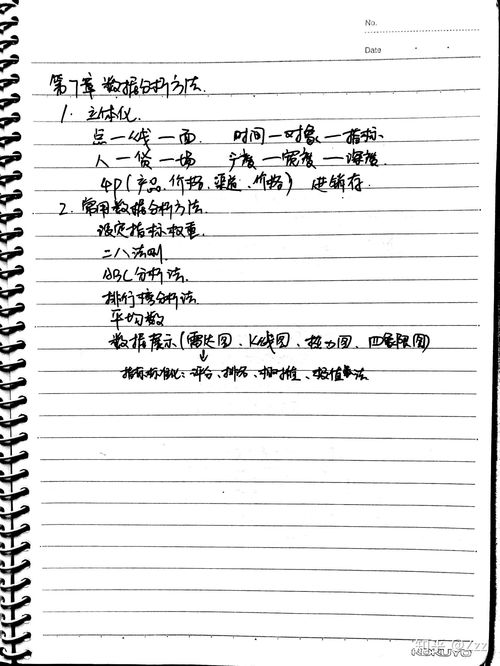 No.
Date
第7章 数据分析方法.
1. 立体化.
点一线一面. 时间一对象一指标
人一货一场 广度一宽度一深度.
4P(产品、价格、渠道、价格) 进销存.
2. 常用数据分析方法.
设定指标权重.
二八法则.
ABC分析法.
排行榜分析法.
平均数
数据展示(雷达图、K线图、热力图、四象限图)
↓
指标标准化: 评分、排名、极值算法
知乎
KOKUYO